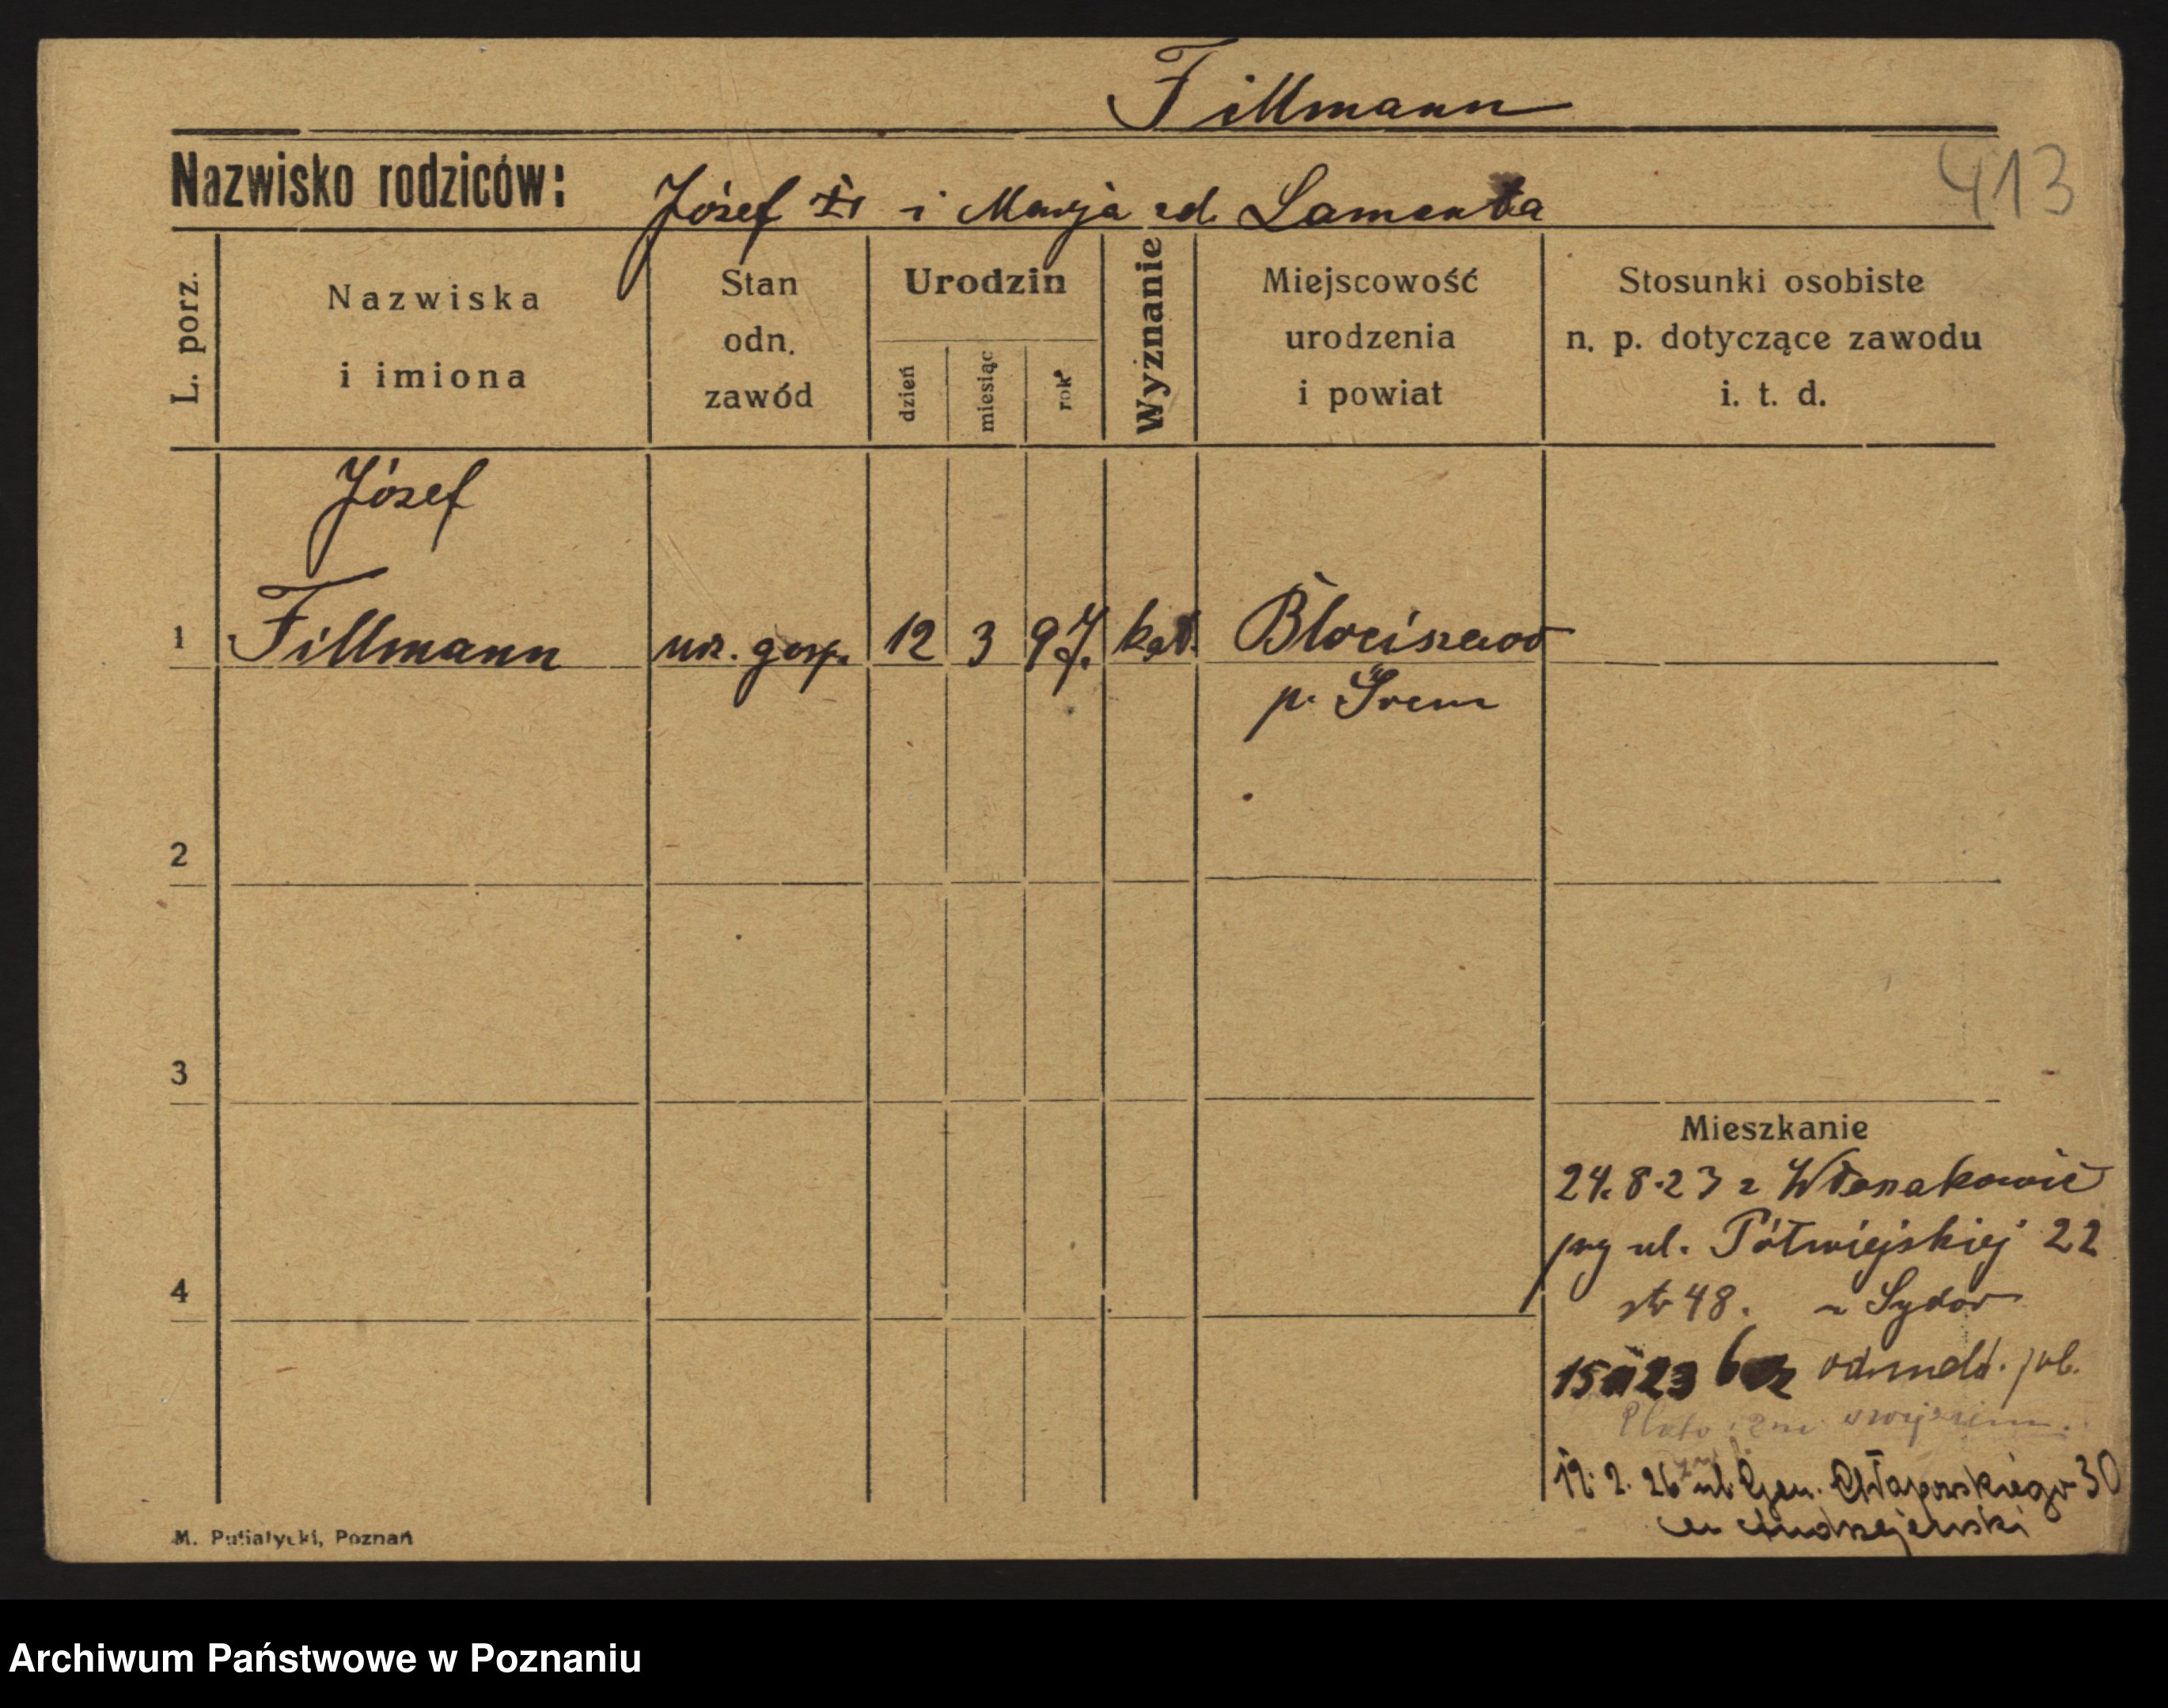 Fillmann
413
Nazwisko rodziców: Józef i Marja zd. Lamenta
L. porz.
Nazwiska i imiona
Stan odn. zawód
Urodzin
dzień
miesiąc
rok
Wyznanie
Miejscowość urodzenia i powiat
Stosunki osobiste n. p. dotyczące zawodu i. t. d.
Józef
1 Fillmann urz. gosp. 12 3 97. kat. Błociszewo
p. Śrem
2
3
4
Mieszkanie
24.8.23 z Włoszakowic
przy ul. Półwiejskiej 22
str 48. u Sydor
15 11 23 bez odmeld.
12. 2. 26 ul. Gen. Chłapowskiego 30
u Andrzejewski
M. Putiatycki, Poznań
Archiwum Państwowe w Poznaniu